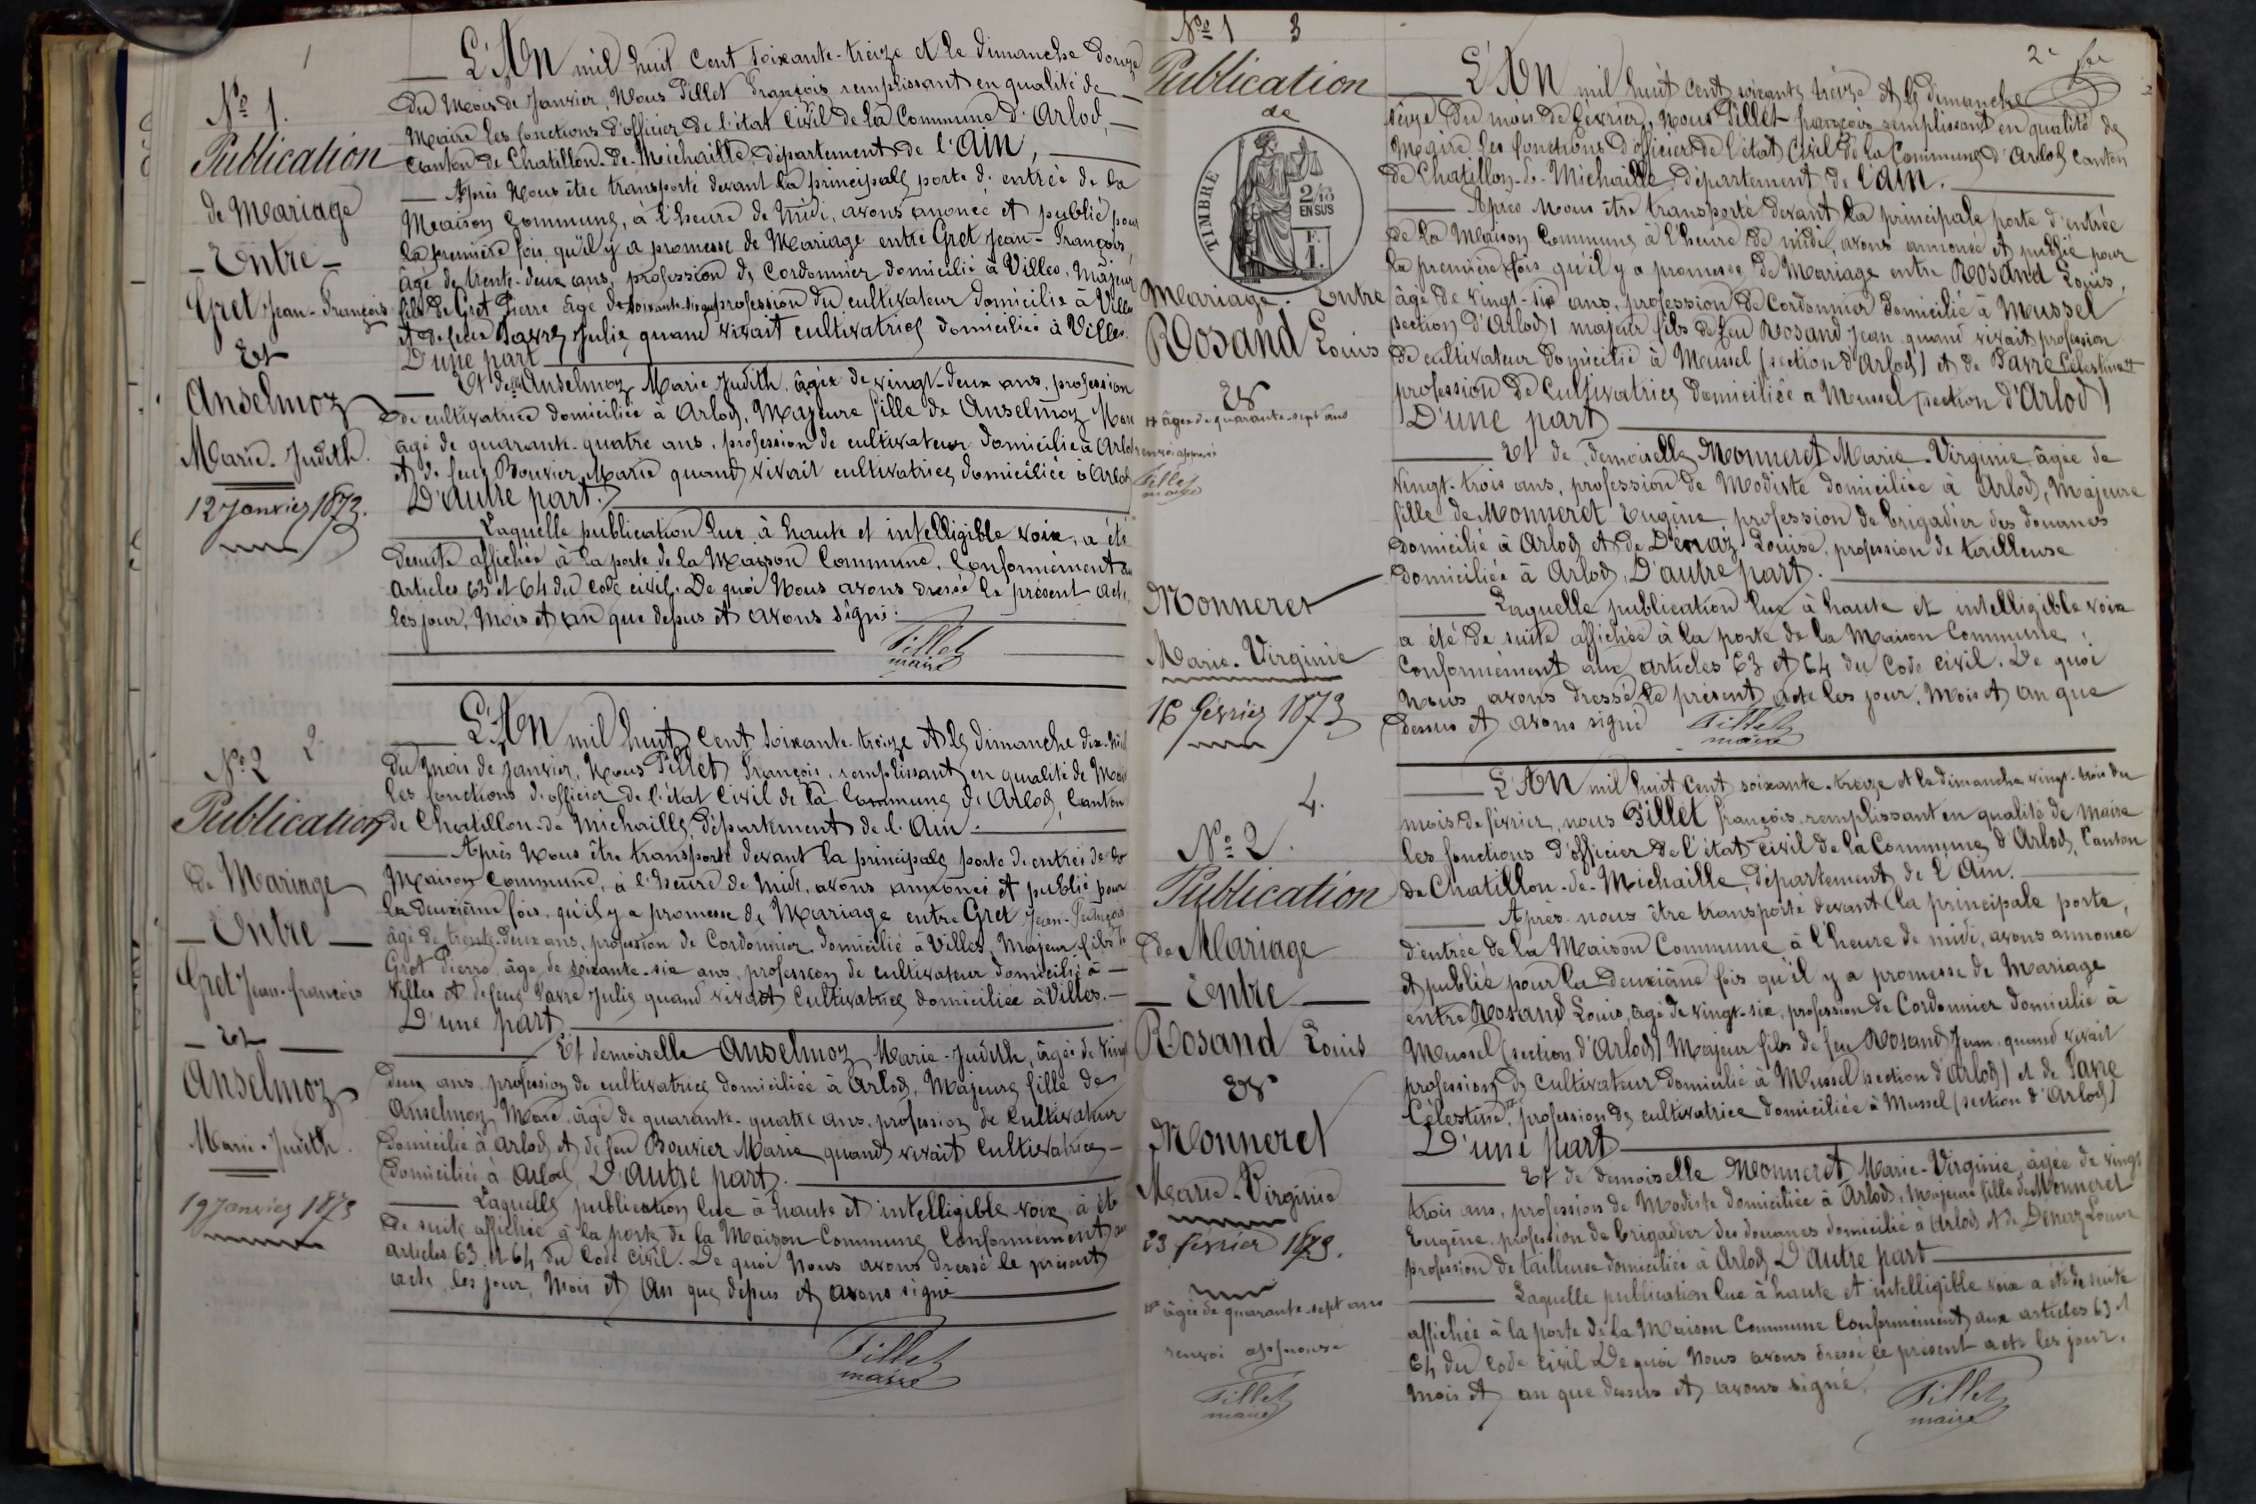 1
Nº 1.
Publication
de Mariage
- Entre -
Gret Jean-François
Et
Anselmoz
Marie-Judith.
12 Janvier 1873.
L'AN mil huit cent soixante-treize et le dimanche douze
du mois de Janvier, Nous Pillet François remplissant en qualité de
Maire les fonctions d'officier de l'état Civil de la Commune d'Arlod,
Canton de Chatillon-de-Michaille, département de l'AIN,
Après Nous être transporté devant la principale porte d'entrée de la
Maison Commune, à l'heure de midi, avons anoncé et publié pour
la première fois qu'il y a promesse de Mariage entre Gret Jean-François,
âgé de trente-deux ans, profession de Cordonnier domicilié à Villes, Majeur
fils de Gret Pierre âgé de soixante-six ans profession du cultivateur domicilié à Villes
et de feue Favre Julie quand vivait cultivatrice domiciliée à Villes.
D'une part
Et de Anselmoz Marie Judith, âgée de vingt-deux ans, profession
de cultivatrice domiciliée à Arlod, Majeure fille de Anselmoz Marc
âgé de quarante-quatre ans, profession de cultivateur domicilié à Arlod
et de feue Bouvier Marie quand vivait cultivatrice domiciliée à Arlod
D'autre part.
Laquelle publication lue à haute et intelligible voix, a été
desuite affichée à la porte de la Maison Commune, Conformément aux
articles 63 et 64 du code civil. De quoi Nous avons dressé le présent acte,
les jour, Mois et an que dessus et avons signé.
Pillet
maire
Nº 2 2
Publication
de Mariage
- Entre -
Gret Jean-françois
- et -
Anselmoz
Marie-Judith.
19 Janvier 1873
L'AN mil huit cent soixante-treize et le dimanche dix-neuf
du mois de janvier, Nous Pillet François, remplissant en qualité de Maire
les fonctions d'officier de l'état Civil de la Commune d'Arlod, Canton
de Chatillon-de Michaille, département de l'Ain.
Après Nous être transporté devant la principale porte d'entrée de la
Maison Commune, à l'heure de midi, avons annoncé et publié pour
la deuxième fois, qu'il y a promesse de Mariage entre Gret Jean-François
âgé de trente-deux ans, profession de Cordonnier domicilié à Villes, Majeur fils de
Gret Pierre, âgé de soixante-six ans, profession de cultivateur domicilié à
Villes et de feue Favre Julie quand vivait Cultivatrice domiciliée à Villes.
D'une part
Et demoiselle Anselmoz Marie-Judith, âgée de vingt
deux ans profession de cultivatrice domiciliée à Arlod, Majeure fille de
Anselmoz Marc âgé de quarante-quatre ans, profession de Cultivateur
domicilié à Arlod et de feu Bouvier Marie quand vivait Cultivatrice
domiciliée à Arlod, D'autre part.
Laquelle publication lue à haute et intelligible voix, a été
de suite affichée à la porte de la Maison Commune Conformément aux
articles 63 et 64 du Code Civil. De quoi Nous avons dressé le présent
acte, les jour, Mois et An que dessus et avons signé
Pillet
maire
Nº 1 3
Publication
de
TIMBRE
2/10
EN SUS
F.
1.
Mariage. Entre
Rosand Louis
Et
âgée de quarante-sept ans
renvoi approuvé
Pillet
maire
Monneret
Marie-Virginie
16 février 1873
2e
L'AN mil huit cent soixante treize et le dimanche
seize du mois de février, Nous Pillet françois remplissant en qualité de
Maire les fonctions d'officier de l'état Civil de la Commune d'Arlod Canton
de Chatillon-de-Michaille, département de l'AIN.
Après Nous être transporté devant la principale porte d'entrée
de la Maison Commune à l'heure de midi, avons annoncé et publié pour
la première fois qu'il y a promesse de Mariage entre Rosand Louis,
âgé de vingt-six ans, profession de Cordonnier domicilié à Mussel
section d'Arlod) majeur fils de feu Rosand Jean quand vivait profession
de cultivateur domicilié à Mussel (section d'Arlod) et de Favre Célestine
profession de Cultivatrice domiciliée à Mussel (section d'Arlod)
D'une part
Et de demoiselle Monneret Marie-Virginie âgée de
vingt-trois ans, profession de Modiste domiciliée à Arlod, Majeure
fille de Monneret Eugène profession de brigadier des douanes
domicilié à Arlod et de Dénaz Louise, profession de tailleuse
domiciliée à Arlod, D'autre part.
Laquelle publication lue à haute et intelligible voix
a été de suite affichée à la porte de la Maison Commune,
Conformément aux articles 63 et 64 du Code Civil. De quoi
Nous avons dressé le présent acte les jour, Mois et an que
dessus et avons signé
Pillet
maire
4.
Nº 2.
Publication
de Mariage
- Entre -
Rosand Louis
Et
Monneret
Marie-Virginie
23 fevrier 1873.
âgée de quarante-sept ans
renvoi approuvé
Pillet
maire
L'AN mil huit cent soixante-treize et le dimanche vingt-trois du
mois de février, nous Pillet françois, remplissant en qualité de Maire
les fonctions d'officier de l'état civil de la Commune d'Arlod, Canton
de Chatillon-de-Michaille, département de l'Ain.
Après nous être transporté devant la principale porte,
d'entrée de la Maison Commune à l'heure de midi, avons annoncé
et publié pour la deuxième fois qu'il y a promesse de Mariage
entre Rosand Louis, âgé de vingt-six, profession de Cordonnier domicilié à
Mussel (section d'Arlod) Majeur fils de feu Rosand Jean quand vivait
profession de Cultivateur domicilié à Mussel (section d'Arlod) et de Favre
Célestine, profession de cultivatrice domiciliée à Mussel (section d'Arlod)
D'une part
Et de demoiselle Monneret Marie-Virginie, âgée de vingt
trois ans, profession de Modiste domiciliée à Arlod, Majeure fille de Monneret
Eugène, profession de brigadier des douanes domicilié à Arlod et de Dénaz Louise
profession de tailleuse domiciliée à Arlod D'autre part
Laquelle publication lue à haute et intelligible voix a été de suite
affichée à la porte de la Maison Commune Conformément aux articles 63 et
64 du Code Civil De quoi Nous avons dressé le présent acte les jour,
Mois et an que dessus et avons signé.
Pillet
maire